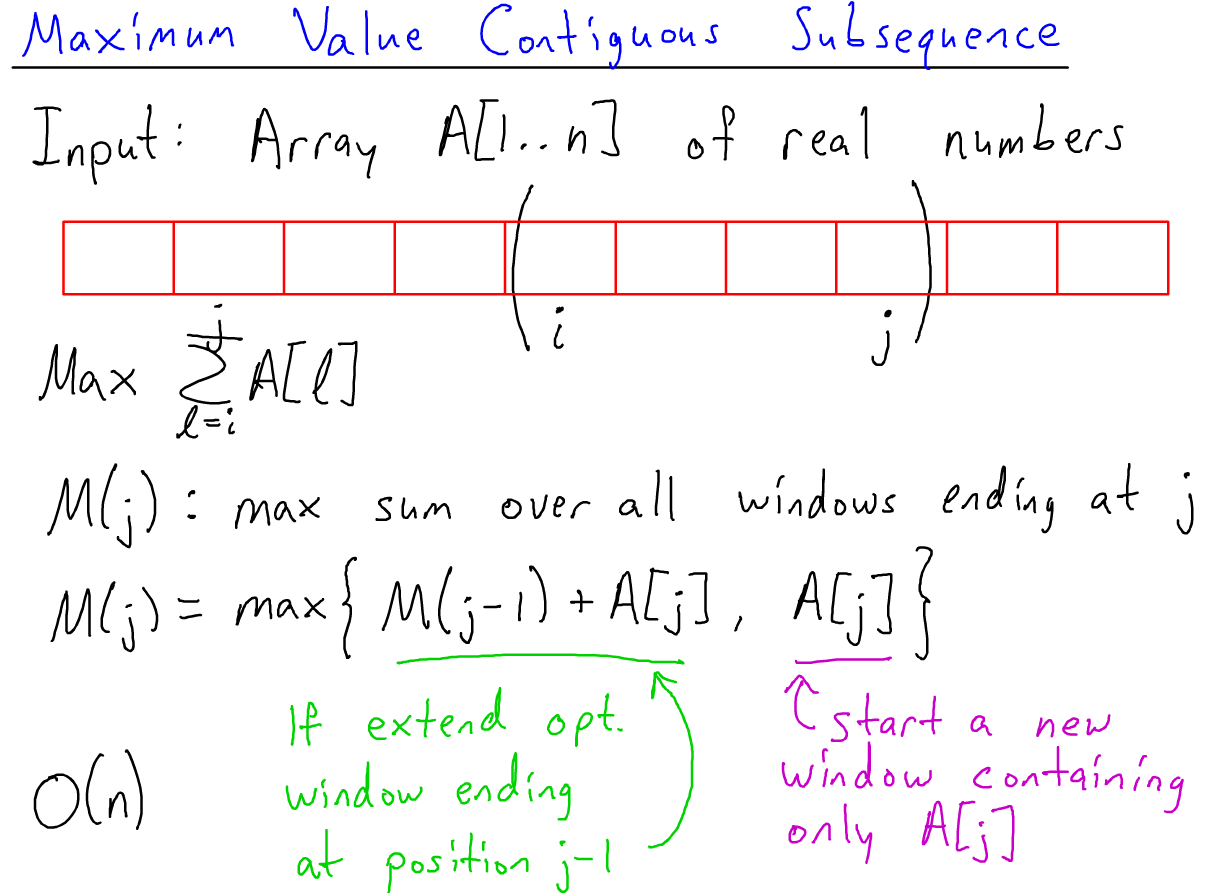 Maximum Value Contiguous Subsequence
Input: Array A[1..n] of real numbers
i j
Max ∑_{l=i}^{j} A[l]
M(j): max sum over all windows ending at j
M(j) = max{ M(j-1) + A[j], A[j] }
If extend opt.
window ending
at position j-1
start a new
window containing
only A[j]
O(n)